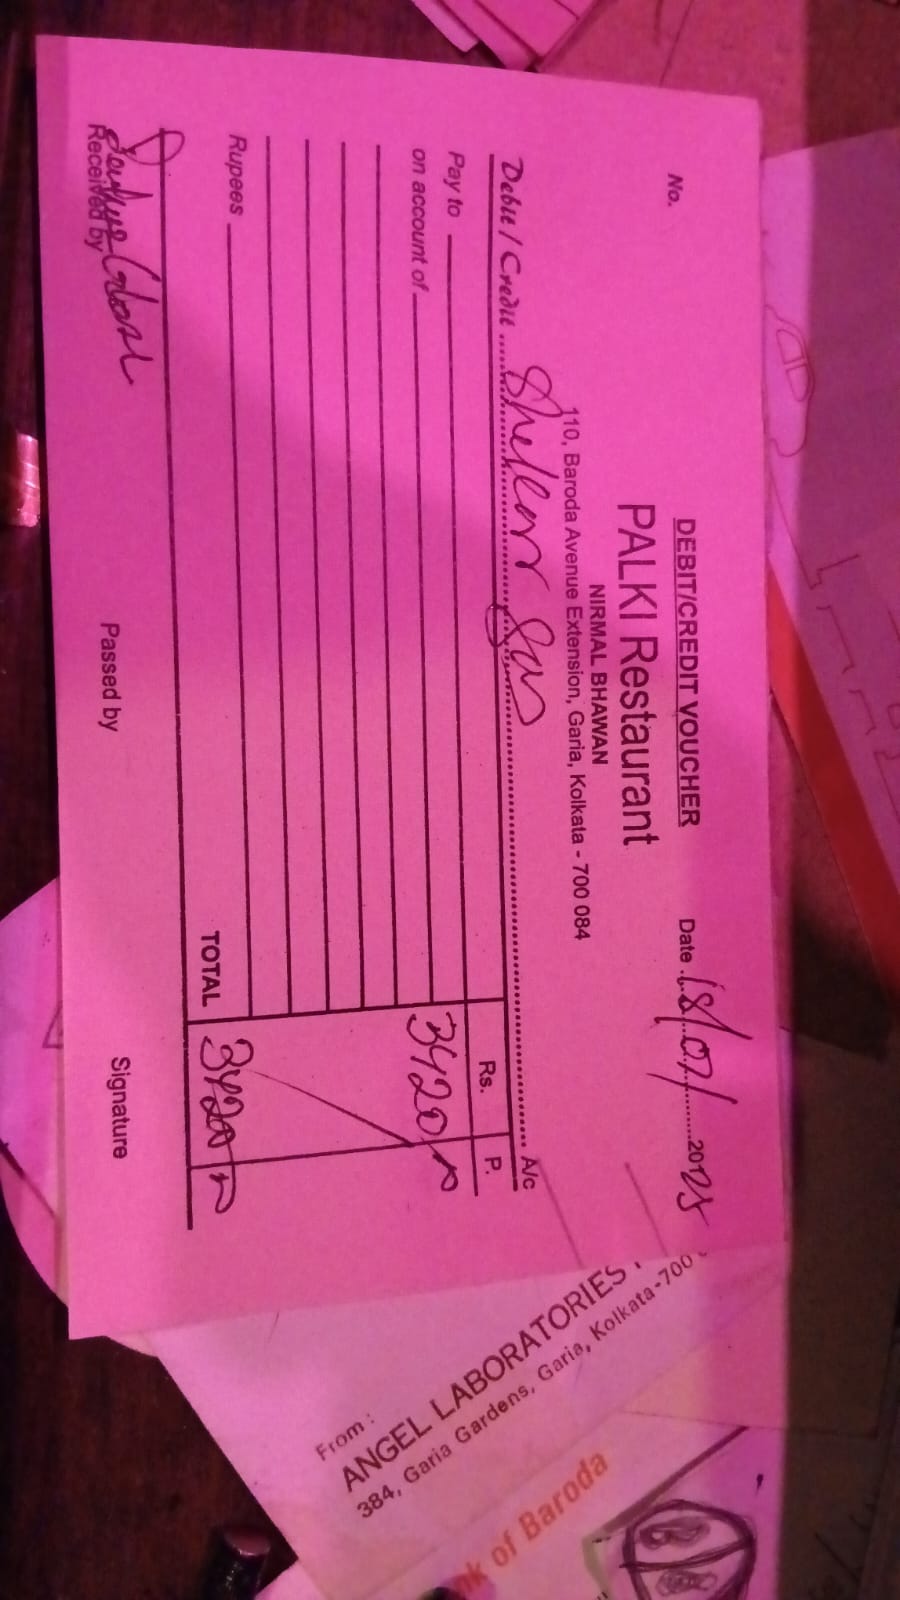 No.
DEBIT/CREDIT VOUCHER
Date 18/07/2025
PALKI Restaurant
NIRMAL BHAWAN
110, Baroda Avenue Extension, Garia, Kolkata - 700 084
Debit / Credit Gas A/c
Rs. P.
Pay to 3420
on account of
Rupees
TOTAL 3420
Received by
Passed by
Signature
From :
ANGEL LABORATORIES
384, Garia Gardens, Garia, Kolkata-700
of Baroda